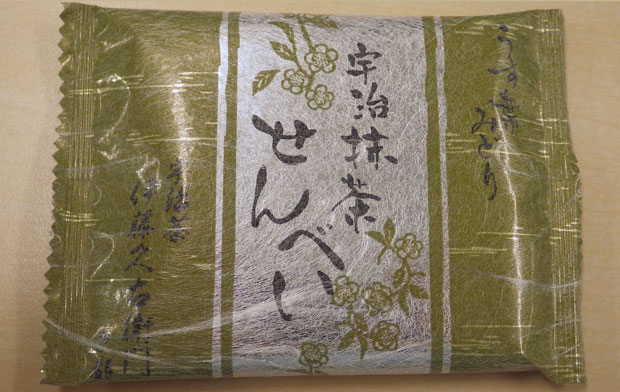 うす葉
みどり
宇治抹茶
せんべい
宇治茶
伊藤久右衛門
京都